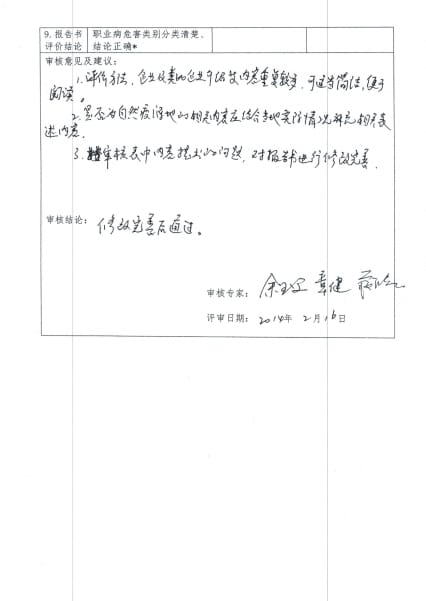 9. 报告书 职业病危害类别分类清楚、
评价结论 结论正确*
审核意见及建议:
1. 评价方法、企业 内容重复较多,可适当简洁,便于
阅读。
2. 是否为自然疫源地的相关内容应结合当地实际情况补充相关表
述内容.
3. 审核表中内容提出的问题,对报告书进行修改完善.
审核结论: 修改完善后通过。
审核专家: 章健
评审日期: 2014年2月16日